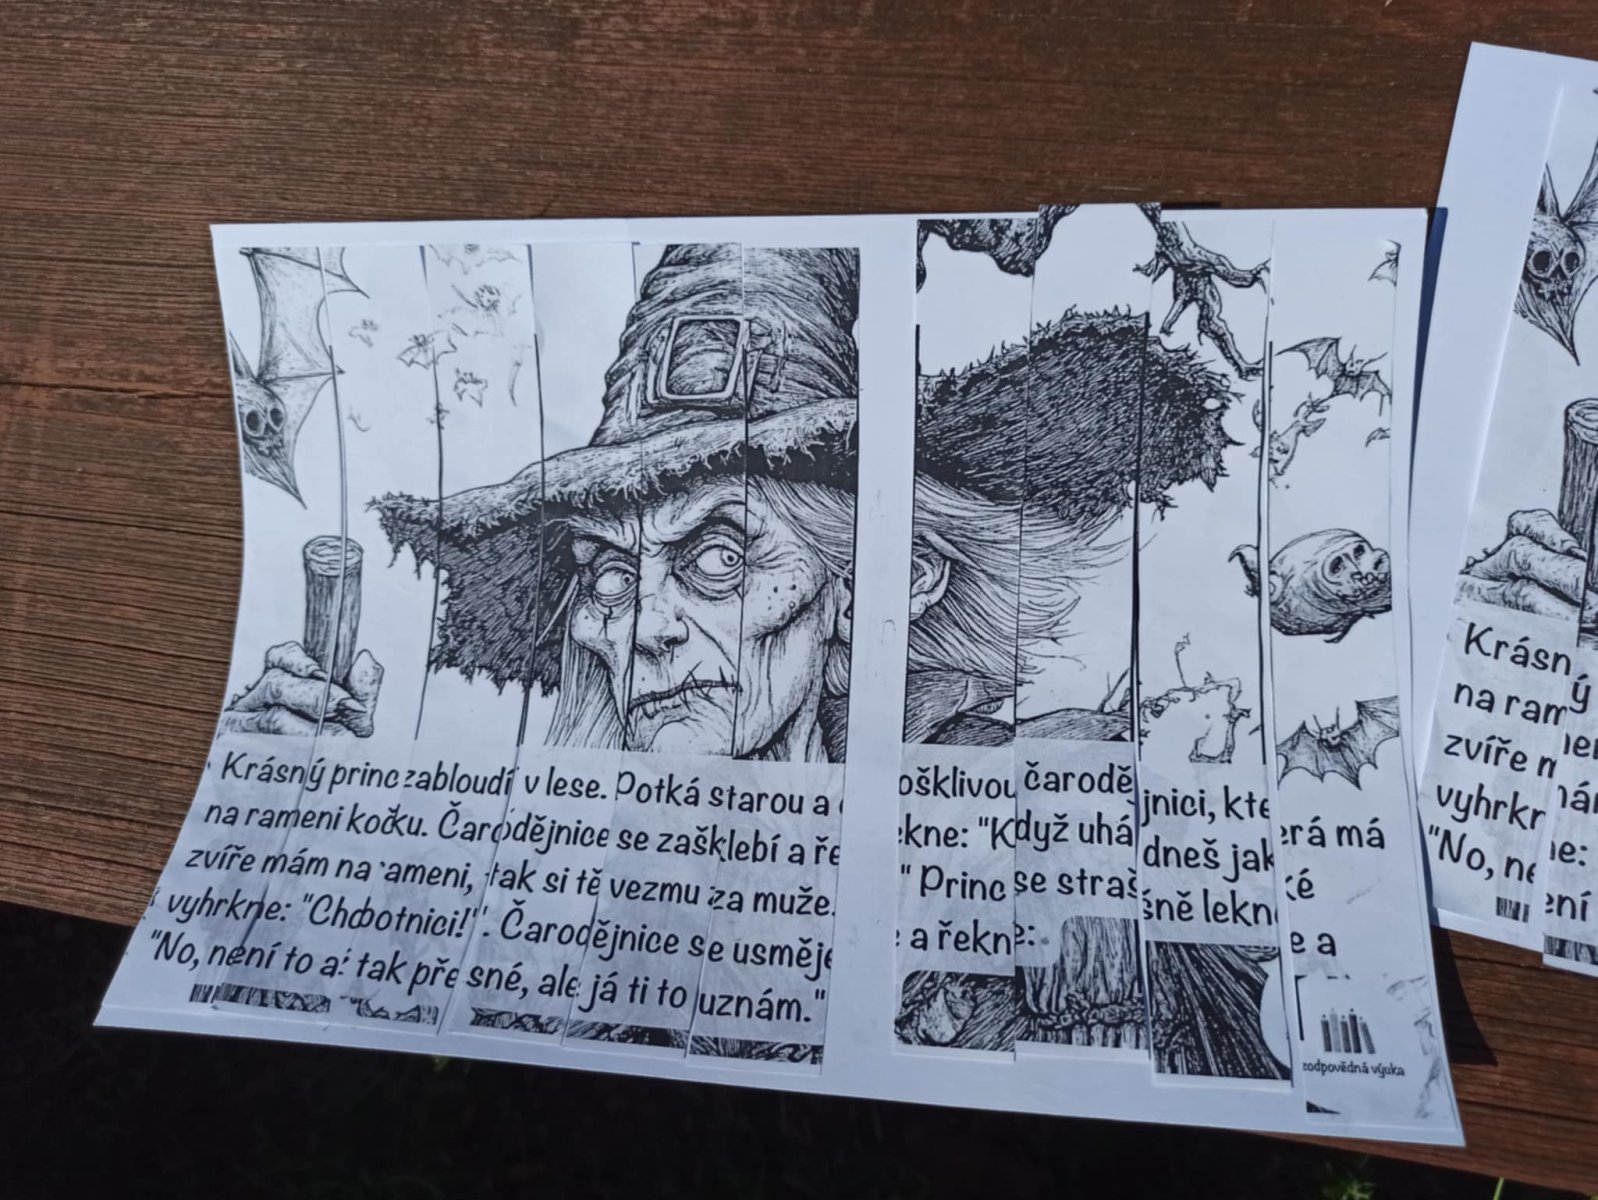 Krásný princ zabloudí v lese. Potká starou a ošklivou čarodějnici, která má
na rameni kočku. Čarodějnice se zašklebí a řekne: "Když uhádneš jaké
zvíře mám na rameni, tak si tě vezmu za muže." Princ se strašně lekne a
vyhrkne: "Chobotnici!". Čarodějnice se usměje a řekne:
"No, není to až tak přesné, ale já ti to uznám."
zodpovědná výuka
Krásný
na ram
zvíře m
vyhrkn
"No, ne